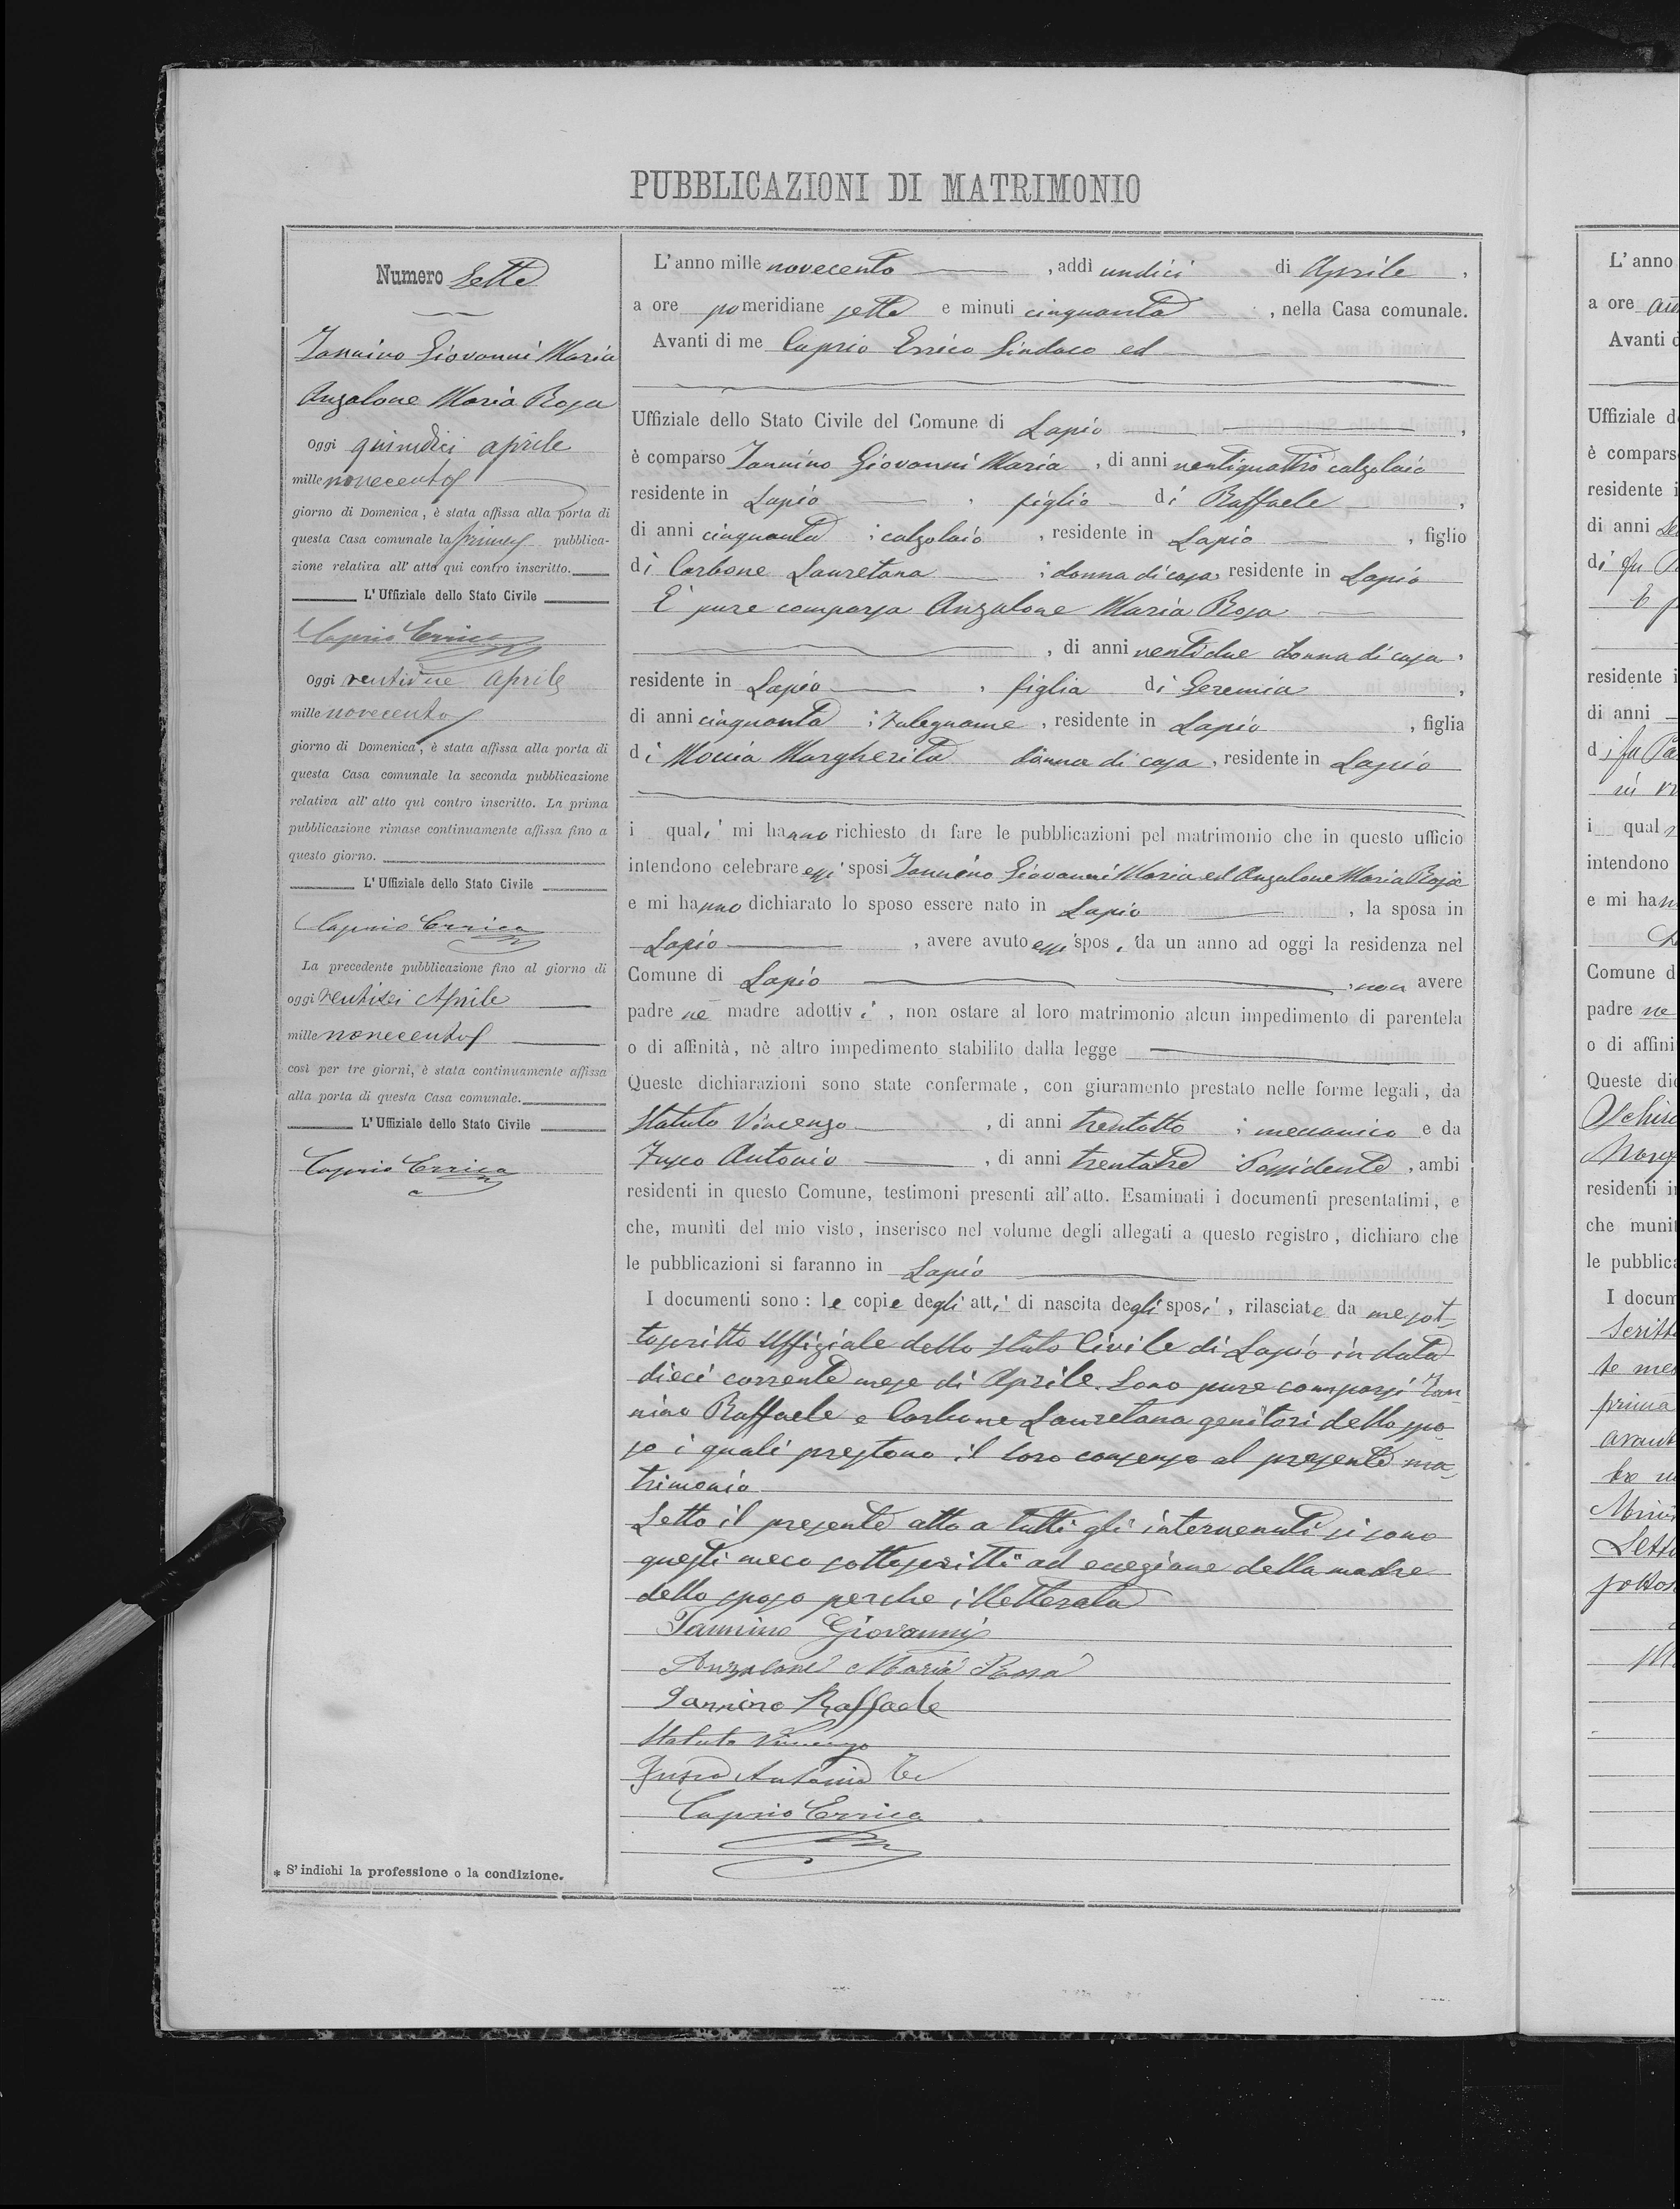 PUBBLICAZIONI DI MATRIMONIO
Numero Sette
Iannino Giovanni Maria
Anzalone Maria Rosa
Oggi quindici aprile
mille novecento
giorno di Domenica, è stata affissa alla porta di
questa Casa comunale la prima pubblica-
zione relativa all' atto qui contro inscritto.
L' Uffiziale dello Stato Civile
Caprio Errico
Oggi ventidue aprile
mille novecento
giorno di Domenica, è stata affissa alla porta di
questa Casa comunale la seconda pubblicazione
relativa all' atto qui contro inscritto. La prima
pubblicazione rimase continuamente affissa fino a
questo giorno.
L' Uffiziale dello Stato Civile
Caprio Errico
La precedente pubblicazione fino al giorno di
oggi ventisei Aprile
mille novecento
così per tre giorni, è stata continuamente affissa
alla porta di questa Casa comunale.
L' Uffiziale dello Stato Civile
Caprio Errico
* S' indichi la professione o la condizione.
L' anno mille novecento, addì undici di Aprile,
a ore pomeridiane sette e minuti cinquanta, nella Casa comunale.
Avanti di me Caprio Errico Sindaco ed
Uffiziale dello Stato Civile del Comune di Lapio,
è comparso Iannino Giovanni Maria, di anni ventiquattro calzolaio
residente in Lapio, figlio di Raffaele,
di anni cinquanta; calzolaio, residente in Lapio, figlio
di Carbone Lauretana; donna di casa, residente in Lapio
È pure comparsa Anzalone Maria Rosa
, di anni ventidue donna di casa,
residente in Lapio, figlia di Geremia,
di anni cinquanta; Falegname, residente in Lapio, figlia
di Moccia Margherita donna di casa, residente in Lapio
i quali mi hanno richiesto di fare le pubblicazioni pel matrimonio che in questo ufficio
intendono celebrare essi sposi Iannino Giovanni Maria ed Anzalone Maria Rosa
e mi hanno dichiarato lo sposo essere nato in Lapio, la sposa in
Lapio, avere avuto essi sposi da un anno ad oggi la residenza nel
Comune di Lapio; non avere
padre nè madre adottivi, non ostare al loro matrimonio alcun impedimento di parentela
o di affinità, nè altro impedimento stabilito dalla legge
Queste dichiarazioni sono state confermate, con giuramento prestato nelle forme legali, da
Statuto Vincenzo, di anni trentotto; meccanico e da
Fusco Antonio, di anni trentatre Possidente, ambi
residenti in questo Comune, testimoni presenti all'atto. Esaminati i documenti presentatimi, e
che, muniti del mio visto, inserisco nel volume degli allegati a questo registro, dichiaro che
le pubblicazioni si faranno in Lapio
I documenti sono: le copie degli atti di nascita degli sposi, rilasciate da me sot
toscritto Uffiziale dello Stato Civile di Lapio in data
dieci corrente mese di Aprile. Sono pure comparsi Ian
nino Raffaele e Carbone Lauretana genitori dello spo
so i quali prestono il loro consenso al presente ma
trimonio
Letto il presente atto a tutti gli intervenuti si sono
questi meco sottoscritti ad eccezione della madre
dello sposo perche illetterata
Iannino Giovanni
Anzalone Maria Rosa
Iannino Raffaele
Statuto Vincenzo
Fusco Antonio
Caprio Errico
L' anno
a ore
Avanti
Uffiziale
è compars
residente
di anni
residente
di anni
qual
intendono
e mi han
Comune d
padre ne
o di affini
Queste
residenti
che muni
le pubblic
I docum
prima